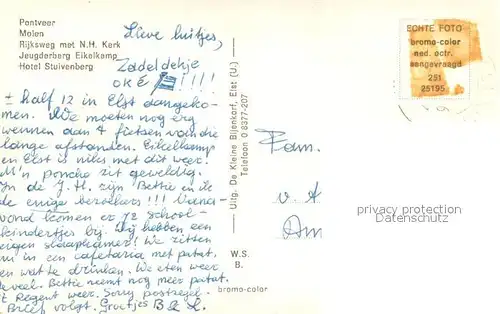 Pontveer
Molen
Rijksweg met N.H. Kerk
Jeugderberg Eikelkamp
Hotel Stuivenberg
Lieve luitjes,
Zadeldekje
oké !!!!
± half 12 in Elst aangeko-
men. We moeten nog erg
wennen aan 't fietsen van die
lange afstanden. Eikelkamp
en Elst is niks met dit weer.
M'n poncho zit geweldig.
In de J.H. zijn Bettie en ik
de enige bezoekers!!! Vana-
vond komen er 72 school-
kindertjes bij. Wij hebben een
eigen slaapkamer! We zitten
nu in een cafetaria met patat.
en wat te drinken. We eten weer
te veel. Bettie neemt nog meer patat.
't Regent weer. Sorry postzegel.
Brief volgt. Groetjes B & L.
Uitg. De Kleine Bijenkorf, Elst (U.)
Telefoon 0 8377-207
W.S.
B.
bromo-color
ECHTE FOTO
bromo-color
ned. octr.
aangevraagd
251
25195
Fam.
v. A
Am
privacy protection
Datenschutz